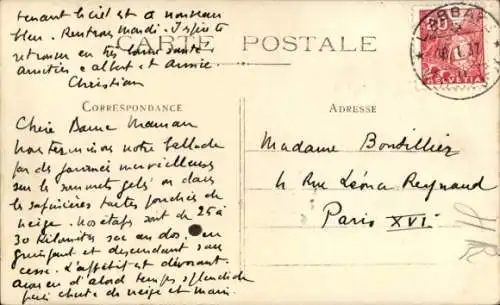 tenant le ciel est à nouveau
bleu. Rentrons mardi. J'espère te
retrouver en très bonne santé
amitiés à Albert et Annie.
Christian
CARTE POSTALE
ORBE
HELVETIA
CORRESPONDANCE
ADRESSE
Chère Bonne Maman
Nous terminons notre ballade
par des journées merveilleuses
sur les sommets gelés ou dans
les sapinières toutes penchées de
neige. Nos étapes sont de 25 à
30 kilomètres sac au dos, en
grimpant et descendant sans
cesse. L'appétit est dévorant.
Avons eu d'abord temps
puis chute de neige et main
Madame Bontillier
4 Rue Léonce Reynaud
Paris XVI